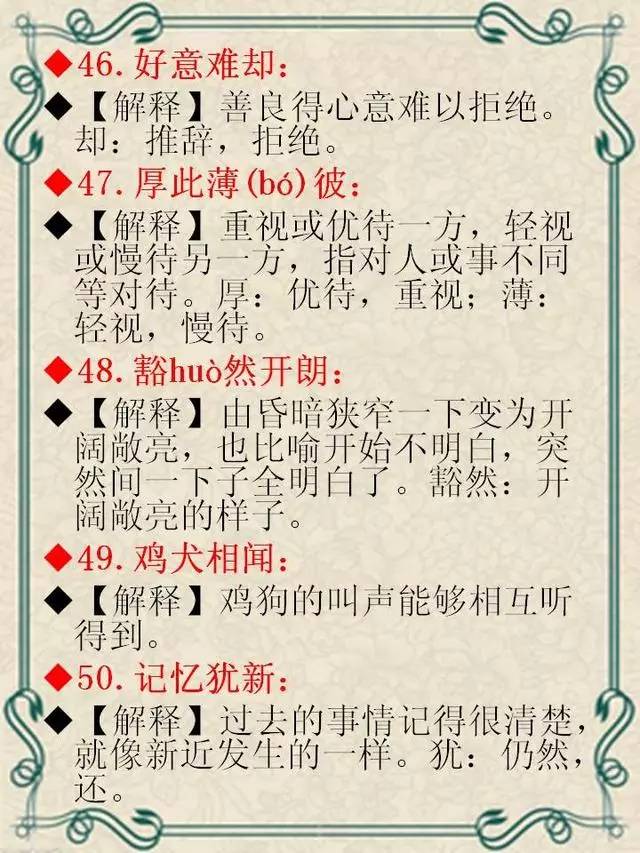 ◆46.好意难却：
◆【解释】善良得心意难以拒绝。
却：推辞，拒绝。
◆47.厚此薄(bó)彼：
◆【解释】重视或优待一方，轻视
或慢待另一方，指对人或事不同
等对待。厚：优待，重视；薄：
轻视，慢待。
◆48.豁huò然开朗：
◆【解释】由昏暗狭窄一下变为开
阔敞亮，也比喻开始不明白，突
然间一下子全明白了。豁然：开
阔敞亮的样子。
◆49.鸡犬相闻：
◆【解释】鸡狗的叫声能够相互听
得到。
◆50.记忆犹新：
◆【解释】过去的事情记得很清楚，
就像新近发生的一样。犹：仍然，
还。